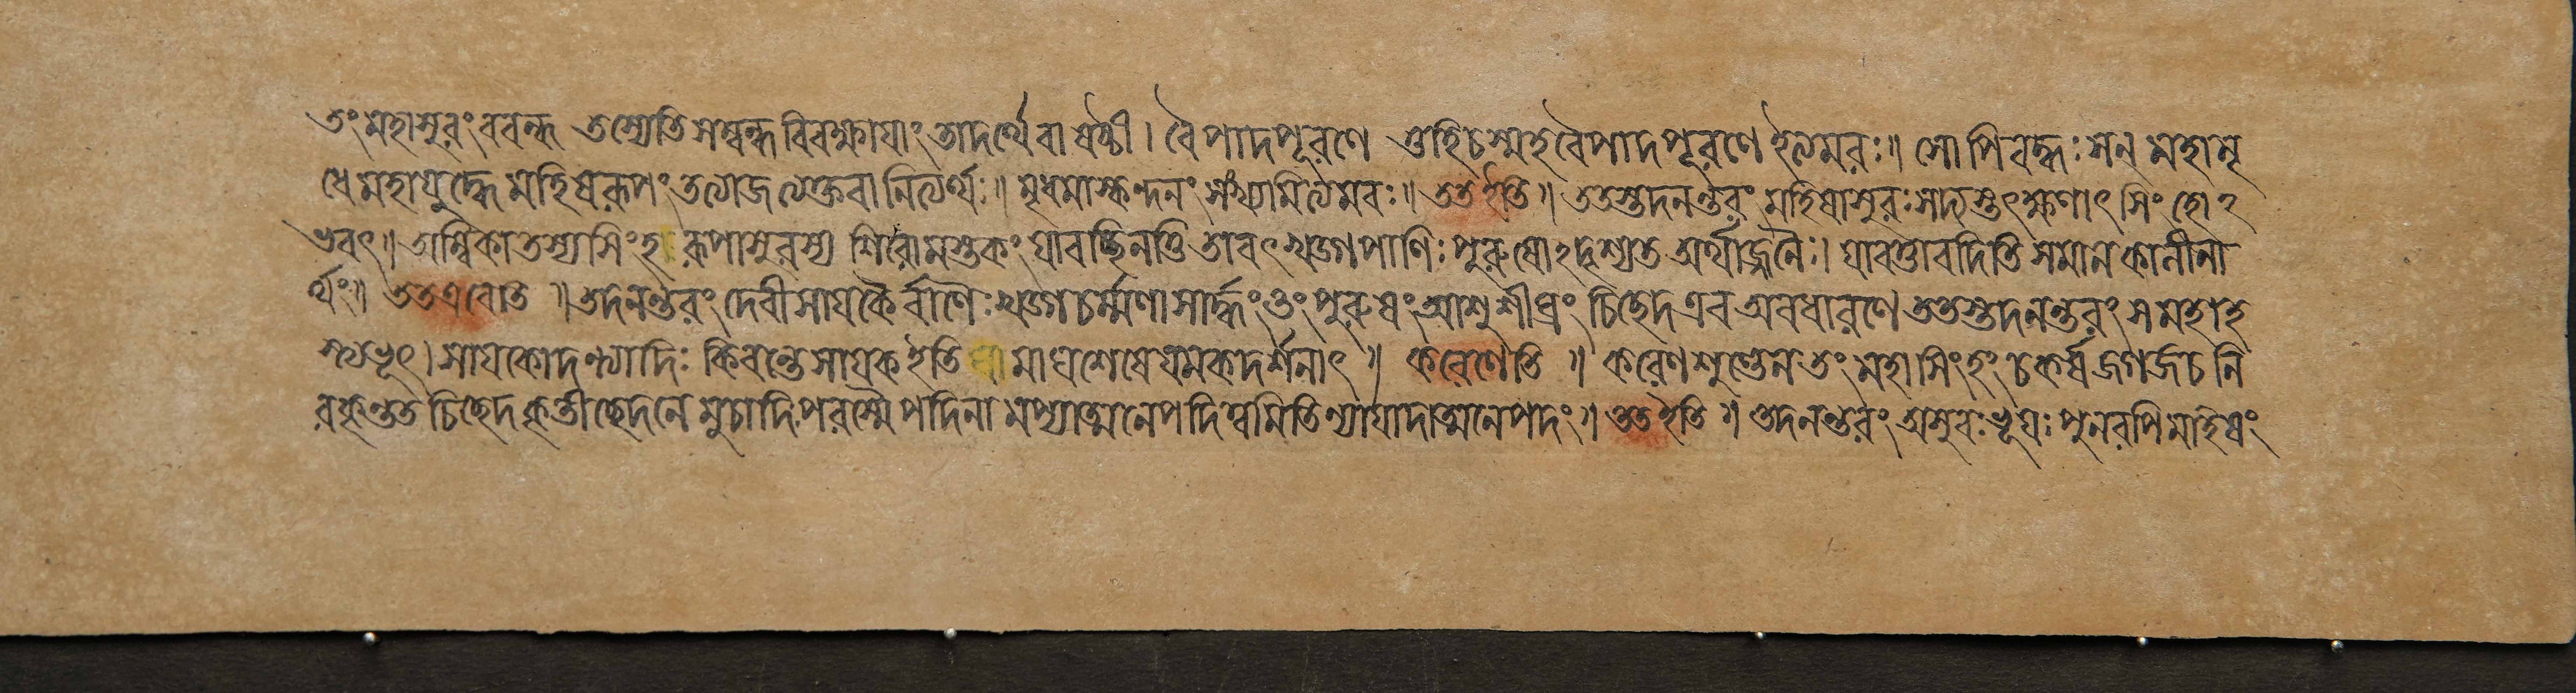 তং মহাসুরং ববন্ধ তস্যেতি সম্বন্ধবিবক্ষাযাং তাদর্থ্যে বা ষষ্ঠী। বৈ পাদপূরণে তুহিচস্মহবৈ পাদপূরণে ইত্যমরঃ॥ সোপি বদ্ধঃ সন্ মহামৃ
ধে মহাযুদ্ধে মহিষরূপং তত্যাজ ত্যক্তবানিত্যর্থঃ॥ মৃধমাস্কন্দনং সংখ্যমিত্যমরঃ॥ তত ইতি॥ ততস্তদনন্তরং মহিষাসুরঃ সদ্যস্তৎক্ষণাৎ সিংহোঽ
ভবৎ॥ অম্বিকা তস্য সিংহরূপাসুরস্য শিরো মস্তকং যাবচ্ছিনত্তি তাবৎ খড্গপাণিঃ পুরুষোঽদৃশ্যত অর্থাজ্জনৈঃ। যাবত্তাবদিতি সমানকালীনা
র্থং॥ তত এবেতি॥ তদনন্তরং দেবী সাযকৈর্বাণৈঃ খড্গচর্ম্মণা সার্দ্ধং তং পুরুষং আশু শীঘ্রং চিছেদ এব অবধারণে ততস্তদনন্তরং স মহাহ
স্ত্যভূৎ। সাযকোদন্ত্যাদিঃ কিবন্তে সাযক ইতি মাঘশেষে যমকদর্শনাৎ॥ করেণেতি॥ করেণ শুণ্ডেন তং মহাসিংহং চকর্ষ জগর্জ চ নি
রকৃন্তত চিছেদ কৃতীছেদনে মুচাদি পরস্মৈপদিনামপ্যাত্মনেপদিত্বমিতি ন্যাযাদাত্মনেপদং॥ তত ইতি॥ তদনন্তরং অসুরঃ ভূযঃ পুনরপি মাহিষং